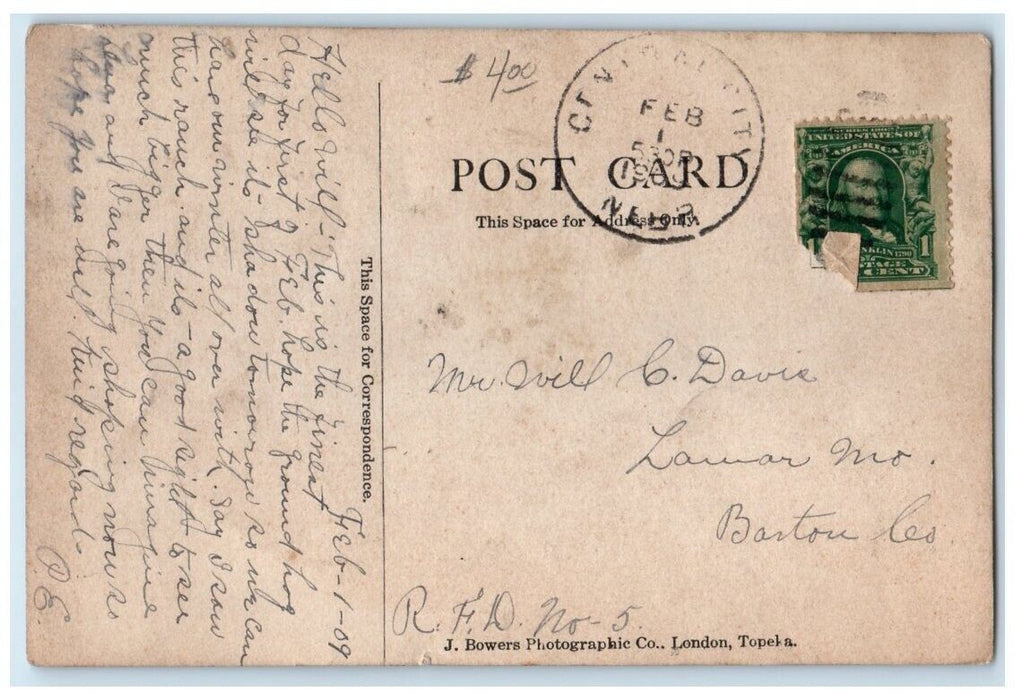 Feb - 1 - 09
Hello Will - This is the finest
day for first of Feb. hope the ground hog
will see its shadow tomourow so we can
have our winter all over with. Say I saw
this ranch and its - a good sight to see
much bigger then you can imagine
and Dare going shoking now so
hope you are well. kind regard -
P.E.
This Space for Correspondence.
$ 4.00
CENTRAL CITY
FEB
1
5 30P
1909
NEBR.
POST CARD
This Space for Address Only.
SERIES 1902
UNITED STATES OF
AMERICA
FRANKLIN 1790
POSTAGE
1 CENT 1
Mr. Will C. Davis
Lamar Mo.
Barton Co
R. F. D. No - 5.
J. Bowers Photographic Co.. London, Topeka.